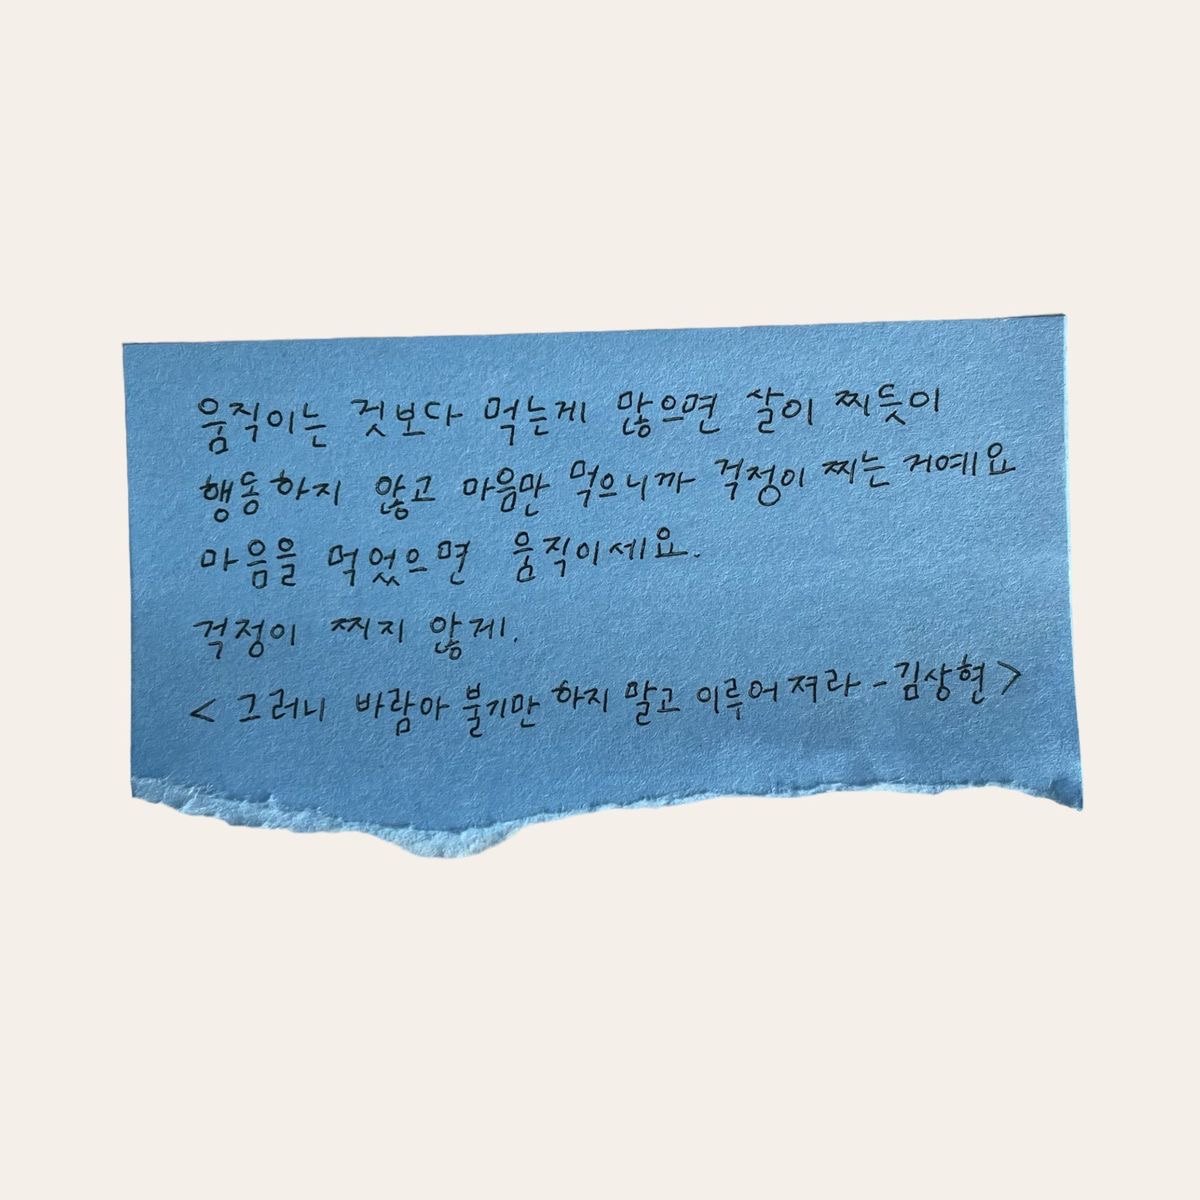 움직이는 것보다 먹는게 많으면 살이 찌듯이
행동하지 않고 마음만 먹으니까 걱정이 찌는 거예요
마음을 먹었으면 움직이세요.
걱정이 찌지 않게.
< 그러니 바람아 불기만 하지 말고 이루어져라 - 김상현 >